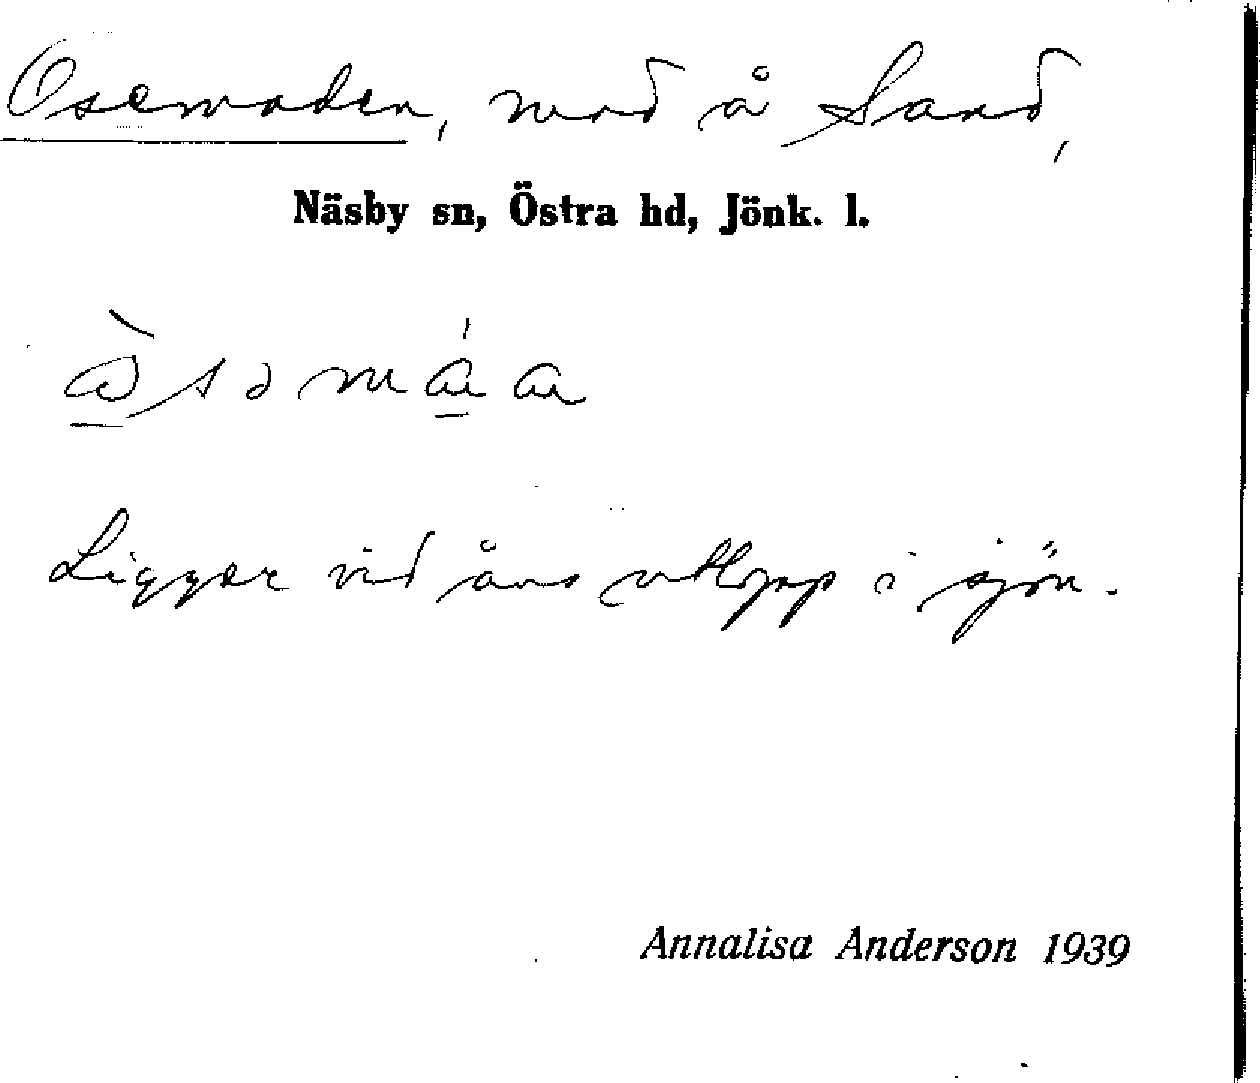 Osemaden, mad å Sand,
Näsby sn, Östra hd, Jönk. l.
Ligger vid åns utlopp i sjön.
Annalisa Anderson 1939